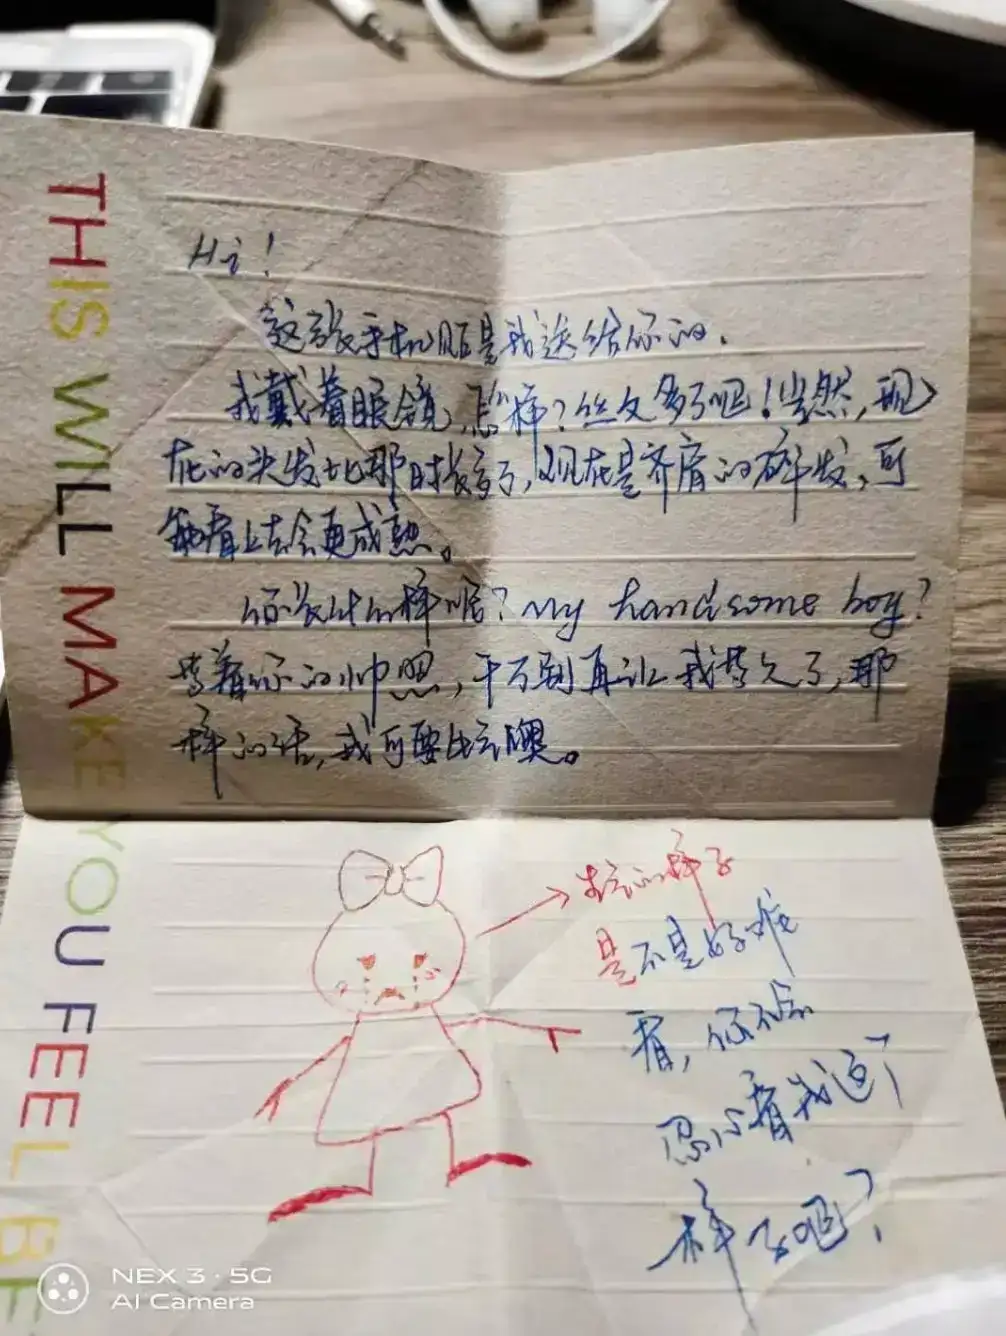 THIS WILL MAKE YOU FEEL BE
Hi!
这张手机贴是我送给你的.
我戴着眼镜,怎样?丝文多了吧!当然,现
在的头发比那时长多了,现在是齐肩的碎发,可
能看上去会更成熟。
你长什么样呢?my handsome boy?
等着你的帅照,千万别再让我等久了,那
样的话,我可要生气噢。
生气的样子
是不是好难
看,你不会
忍心看我这个
样子吧?
NEX 3·5G
AI Camera